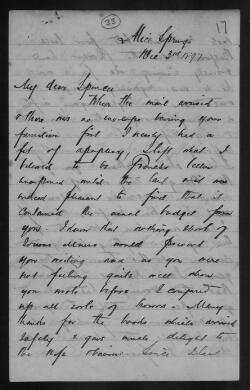 33
17
Alice Springs
Dec 3rd 1897
My dear Spencer
When the mail arrived
& there was no envelope bearing your
familiar fist I nearly had a
fit of apoplexy, I left what I
believed to be Gillen's letter
unopened until the last and was
indeed pleasant to find that it
contained the usual budget from
you. I know that nothing short of
serious illness would prevent
you writing and as you were
not feeling quite well when
you wrote before I conjured
up all sorts of horrors. Many
thanks for the books which arrived
safely & gave much delight to
the